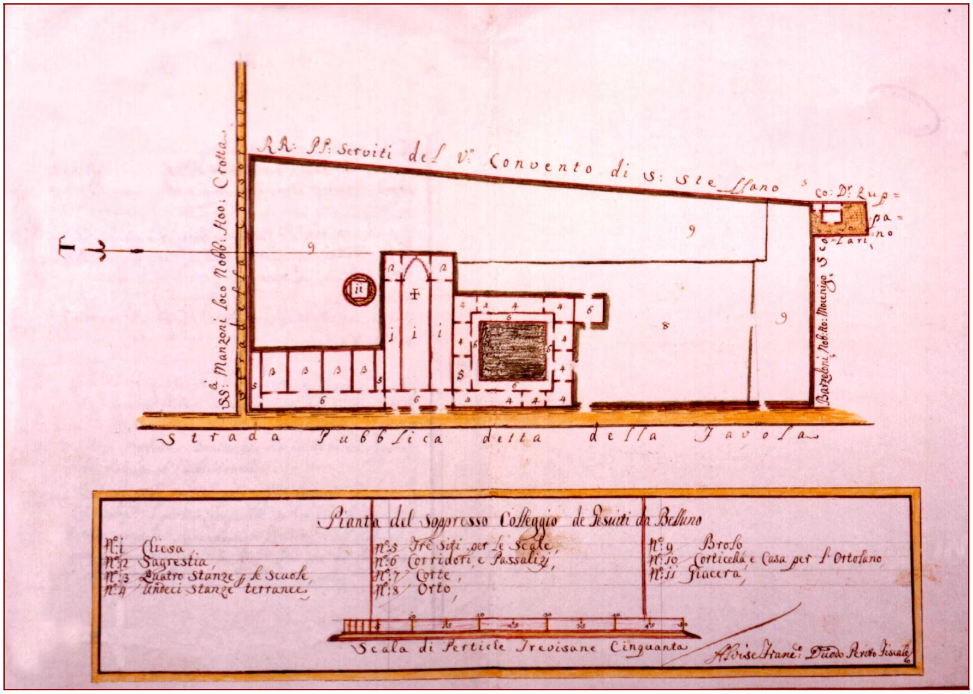 RR: PP: Serviti del V: Convento di S: Steffano
Co: Dr. Zup=
pa=
no
SS: Manzoni loco Nobb: Hoo: Crotta
Barzelani Nobb: Mocenigo
T
9
9
9
8
11
2
2
1
1
1
3
3
3
3
5
5
6
6
4
4
4
4
6
6
6
6
6
4
4
4
4
4
4
4
5
Strada Pubblica detta della Favola
Pianta del soppresso Colleggio de Gesuiti di Belluno
N:o 1 Chiesa
N:o 2 Sagrestia,
N:o 3 Quatro Stanze p. le Scuole,
N:o 4 Undeci Stanze terranee,
N:o 5 Tre Siti per le Scale,
N:o 6 Corridori e Passalizi,
N:o 7 Corte,
N:o 8 Orto,
N:o 9 Brolo
N:o 10 Corticella e Casa per l'Ortolano
N:o 11 Giacera,
Scala di Pertiche Trevisane Cinquanta
Alvise Franc: Duodo Perito Fiscale